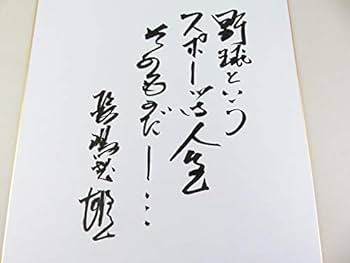 野球という
スポーツは人生
そのものだ―…
長嶋茂雄